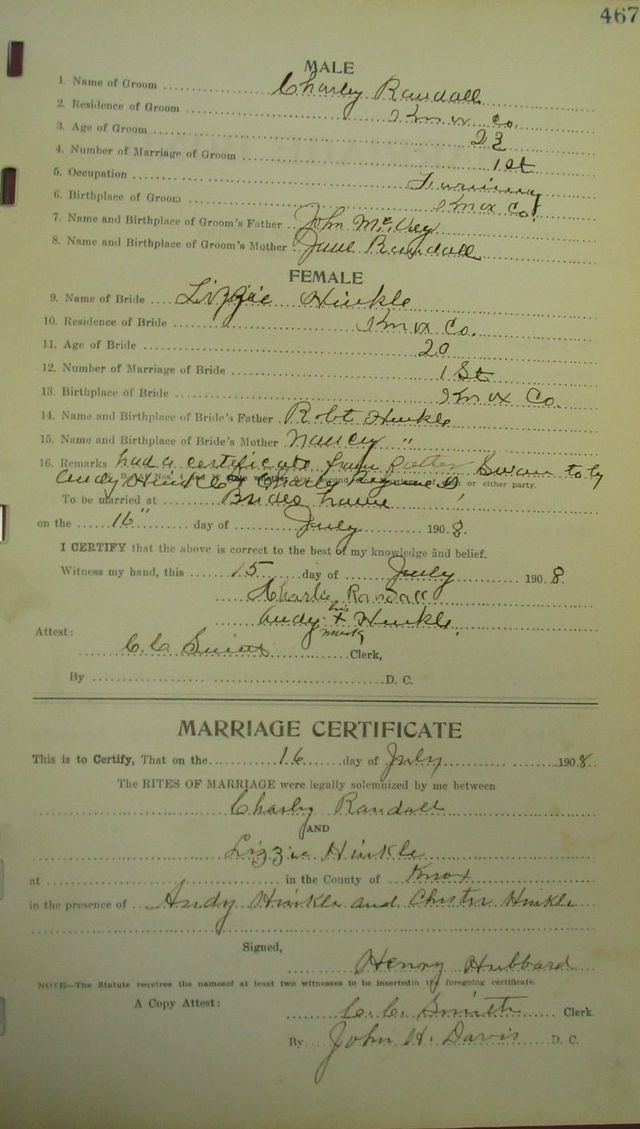 467
MALE
1. Name of Groom Charley Randall
2. Residence of Groom Knox Co.
3. Age of Groom 23
4. Number of Marriage of Groom 1st
5. Occupation Farming
6. Birthplace of Groom Knox Co.
7. Name and Birthplace of Groom's Father John McVey
8. Name and Birthplace of Groom's Mother Jane Randall
FEMALE
9. Name of Bride Lizzie Hinkle
10. Residence of Bride Knox Co.
11. Age of Bride 20
12. Number of Marriage of Bride 1 St
13. Birthplace of Bride Knox Co.
14. Name and Birthplace of Bride's Father Robt Hinkle
15. Name and Birthplace of Bride's Mother Nancy "
16. Remarks had a certificate from Swan to by
Andy Hinkle or either party.
To be married at Brides home
on the 16" day of July 1908.
I CERTIFY that the above is correct to the best of my knowledge and belief.
Witness my hand, this 15 day of July 1908.
Charlie Randall
his
Andy X Hinkle.
mark
Attest:
C. C. Smith Clerk,
By D. C.
MARRIAGE CERTIFICATE
This is to Certify, That on the 16 day of July 1908.
The RITES OF MARRIAGE were legally solemnized by me between
Charley Randall
AND
Lizzie Hinkle
at in the County of Knox
in the presence of Andy Hinkle and Chester Hinkle
Signed,
Henry Hubbard
NOTE—The Statute requires the names of at least two witnesses to be inserted in the foregoing certificate.
A Copy Attest: C. C. Smith Clerk.
By John H. Davis D. C.